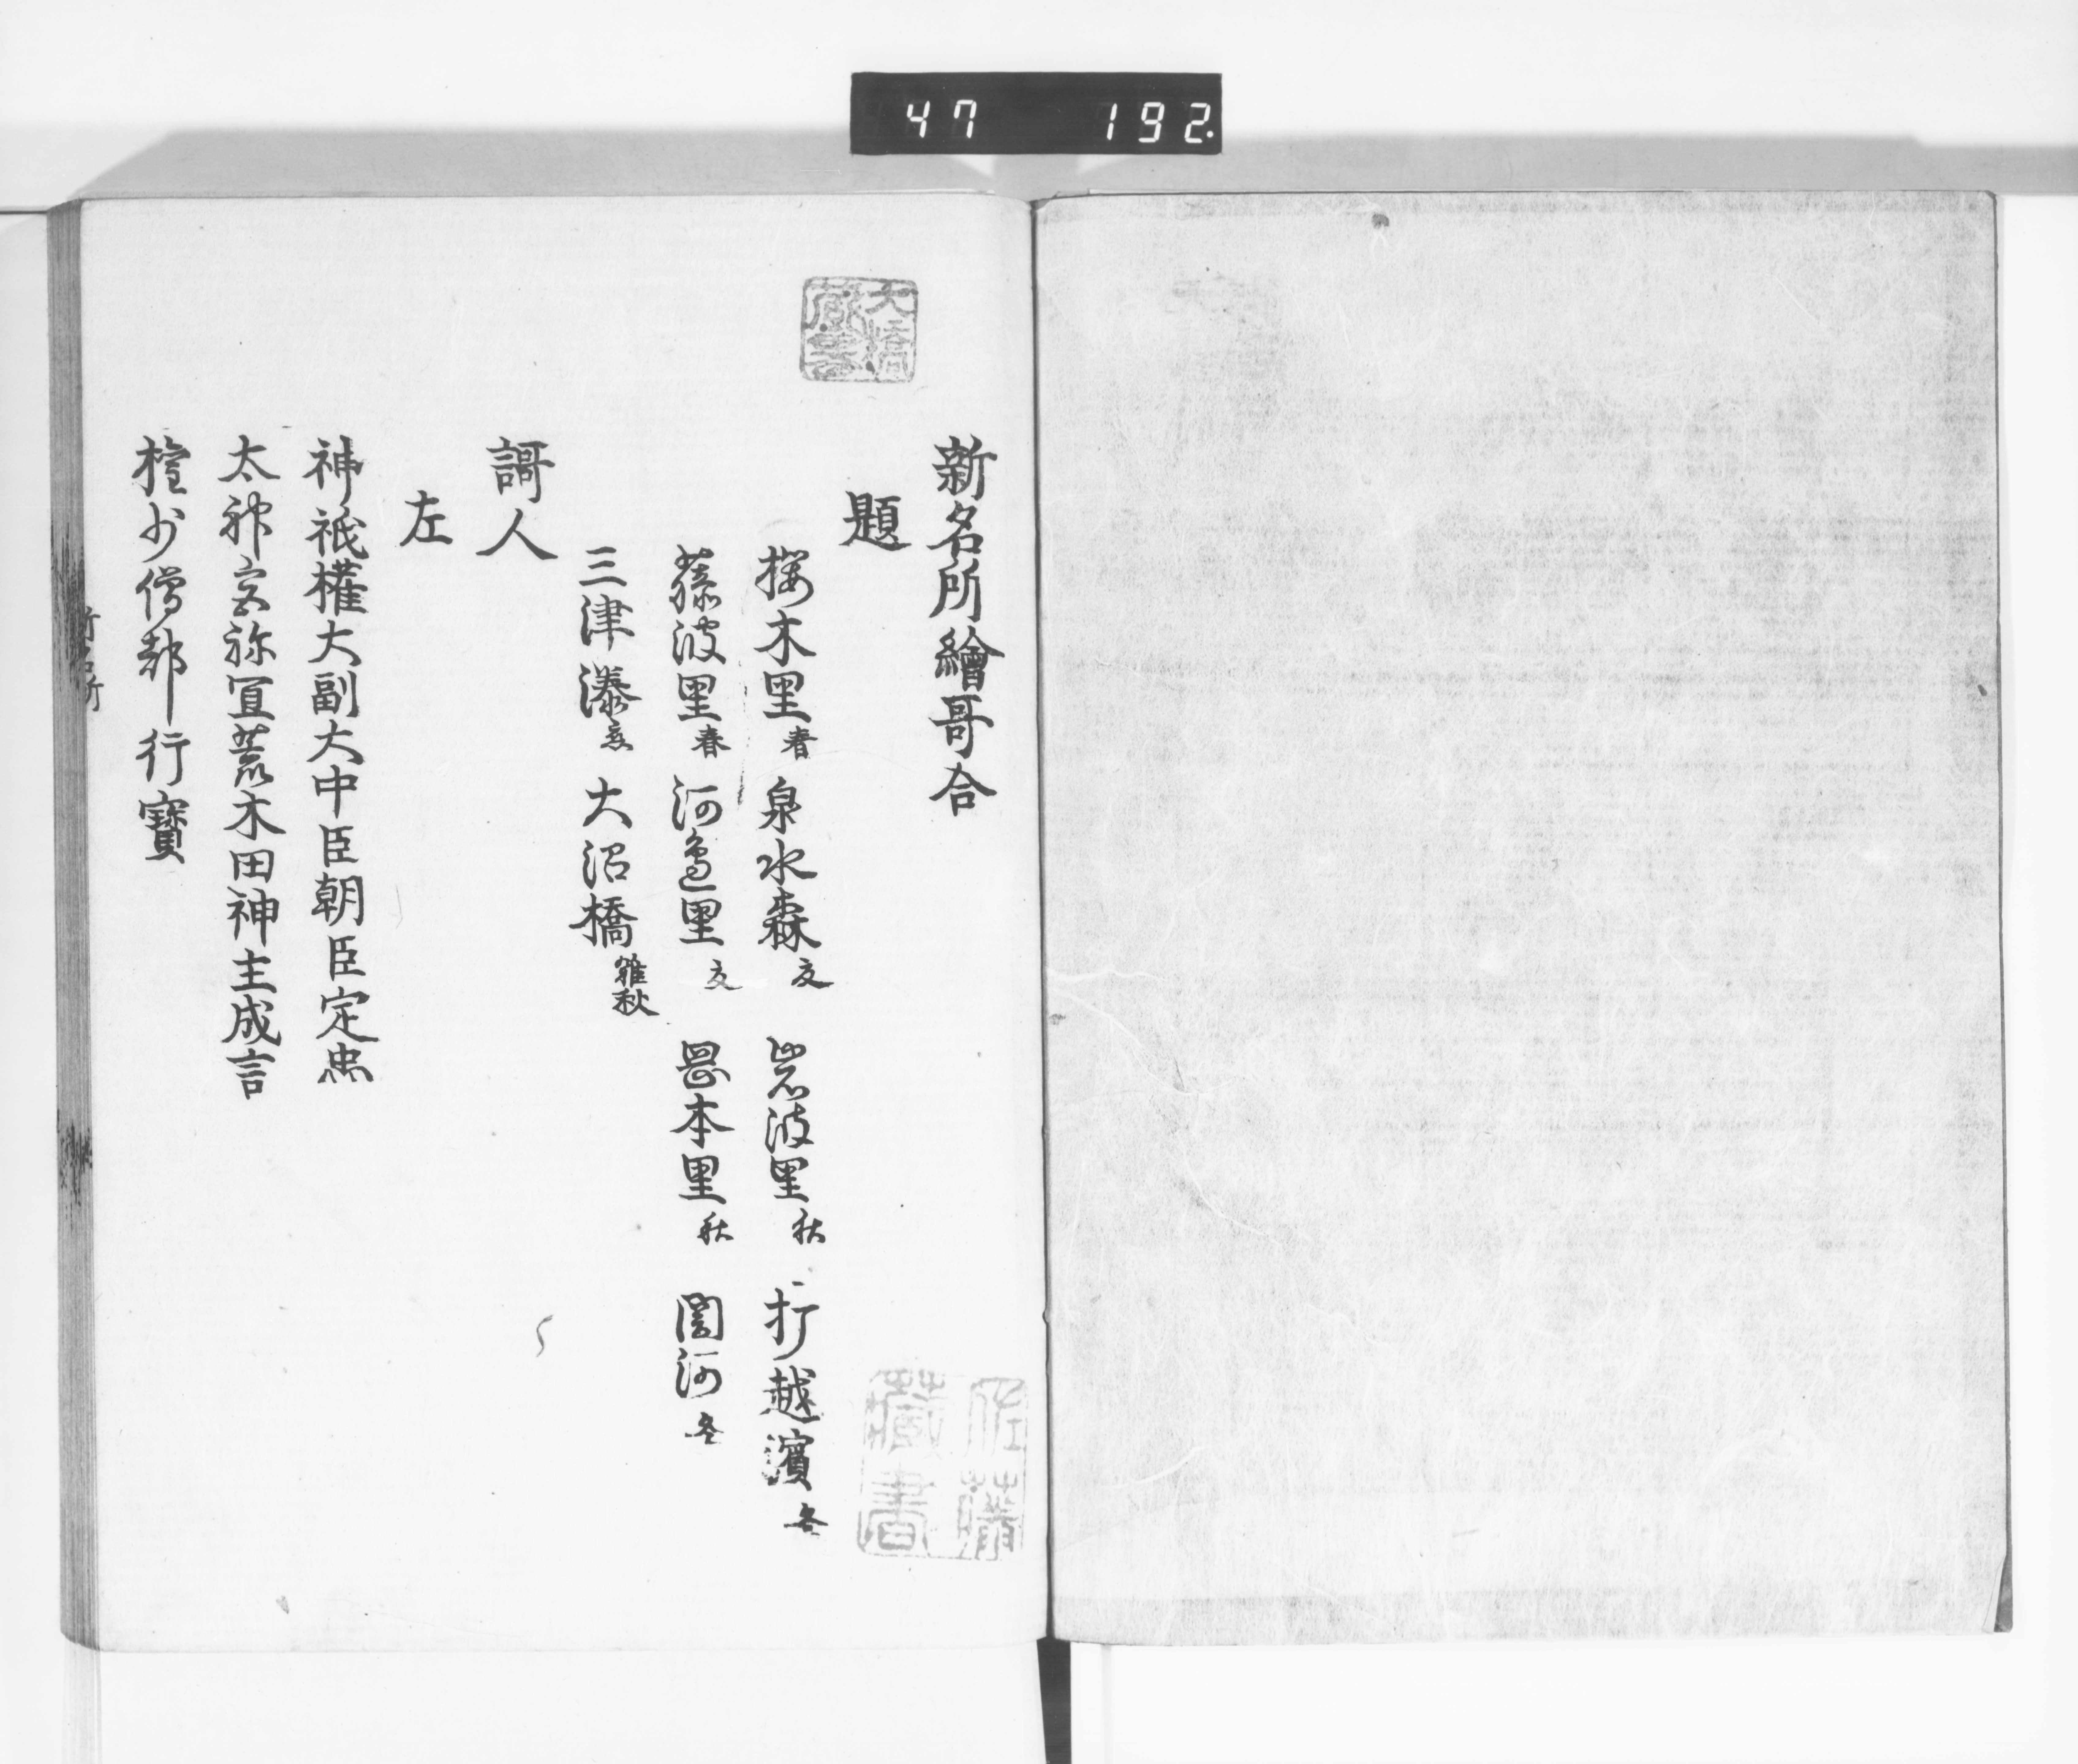 47 192.
新名所繪哥合
題
櫻木里春 泉水森夏 岩波里秋 打越濱冬
藤波里春 河邊里夏 岡本里秋 閑河冬
三津湊恋 大沼橋雜秋
謌人
左
神祇權大副大中臣朝臣定忠
太神宮祢宜荒木田神主成言
權少僧都行寶
新名所
大橋
藏書
佐藤
藏書